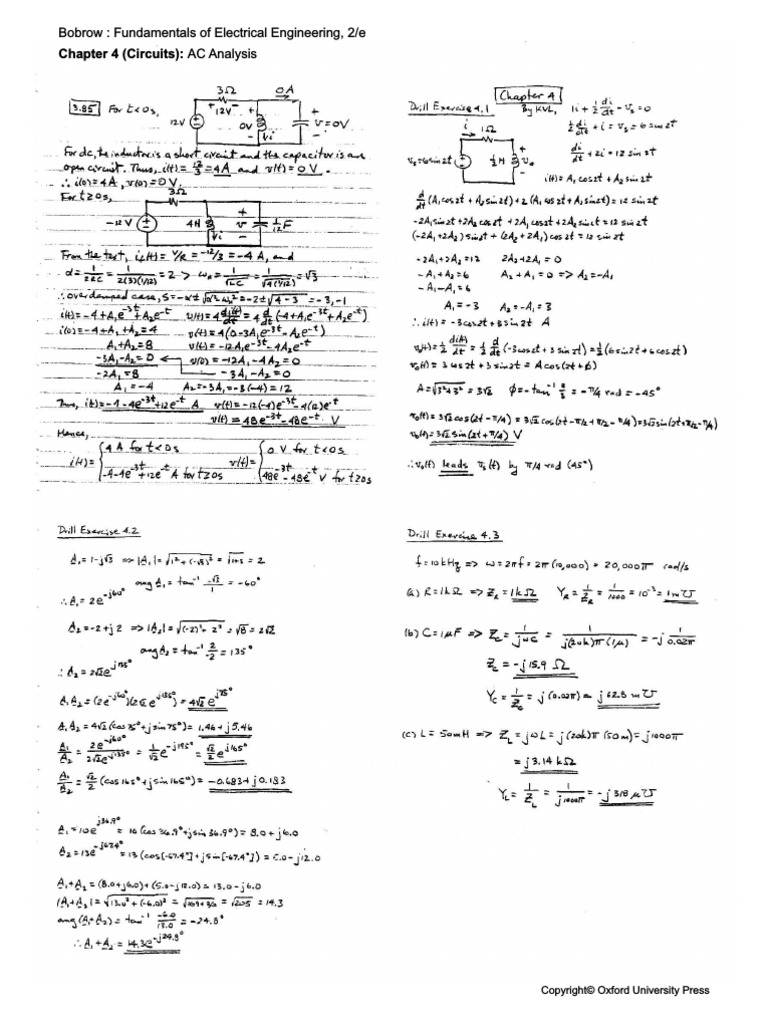 Bobrow : Fundamentals of Electrical Engineering, 2/e
Chapter 4 (Circuits): AC Analysis
3.85 For t<0s,
3Ω 0A
+ 12V − +
12V 0V v=0V
i −
For dc, the inductor is a short circuit and the capacitor is an
open circuit. Thus, i(t) = 12/3 = 4A and v(t) = 0V.
∴ i(0) = 4A, v(0) = 0V.
For t≥0s,
3Ω
−12V 4H v 1/12 F
i
From the text, i_f(t) = V/R = −12/3 = −4 A, and
α = 1/2RC = 1/2(3)(1/12) = 2 > ω_n = 1/√LC = 1/√4(1/12) = √3
∴ overdamped case, s = −α ± √α²−ω_n² = −2 ± √4−3 = −3, −1
i(t) = −4 + A₁e^−3t + A₂e^−t v(t) = 4 di(t)/dt = 4 d/dt (−4 + A₁e^−3t + A₂e^−t)
i(0) = −4 + A₁ + A₂ = 4 v(t) = 4(0 − 3A₁e^−3t − A₂e^−t)
A₁ + A₂ = 8 v(t) = −12A₁e^−3t − 4A₂e^−t
−3A₁ − A₂ = 0 ← v(0) = −12A₁ − 4A₂ = 0
−2A₁ = 8 −3A₁ − A₂ = 0
A₁ = −4 A₂ = −3A₁ = −3(−4) = 12
Thus, i(t) = −4 − 4e^−3t + 12e^−t A v(t) = −12(−4)e^−3t − 4(12)e^−t
v(t) = 48e^−3t − 48e^−t V
Hence,
i(t) = { 4 A for t<0s v(t) = { 0 V for t<0s
−4 − 4e^−3t + 12e^−t A for t≥0s 48e^−3t − 48e^−t V for t≥0s
Chapter 4
Drill Exercise 4.1 By KVL, 1i + 1/2 di/dt − v_s = 0
i 1Ω 1/2 di/dt + i = v_s = 6 sin 2t
v_s = 6 sin 2t 1/2 H v_o di/dt + 2i = 12 sin 2t
i(t) = A₁ cos 2t + A₂ sin 2t
d/dt (A₁ cos 2t + A₂ sin 2t) + 2(A₁ cos 2t + A₂ sin 2t) = 12 sin 2t
−2A₁ sin 2t + 2A₂ cos 2t + 2A₁ cos 2t + 2A₂ sin 2t = 12 sin 2t
(−2A₁ + 2A₂) sin 2t + (2A₂ + 2A₁) cos 2t = 12 sin 2t
−2A₁ + 2A₂ = 12 2A₂ + 2A₁ = 0
−A₁ + A₂ = 6 A₂ + A₁ = 0 => A₂ = −A₁
−A₁ − A₁ = 6
A₁ = −3 A₂ = −A₁ = 3
∴ i(t) = −3 cos 2t + 3 sin 2t A
v_o(t) = 1/2 di(t)/dt = 1/2 d/dt (−3 cos 2t + 3 sin 2t) = 1/2 (6 sin 2t + 6 cos 2t)
v_o(t) = 3 cos 2t + 3 sin 2t = A cos(2t + φ)
A = √3²+3² = 3√2 φ = −tan⁻¹ 3/3 = −π/4 rad = −45°
v_o(t) = 3√2 cos(2t − π/4) = 3√2 cos(2t − π/2 + π/2 − π/4) = 3√2 sin(2t + π/2 − π/4)
v_o(t) = 3√2 sin(2t + π/4) V
∴ v_o(t) leads v_s(t) by π/4 rad (45°)
Drill Exercise 4.2
A₁ = 1 − j√3 => |A₁| = √1² + (−√3)² = √1+3 = 2
ang A₁ = tan⁻¹ −√3/1 = −60°
∴ A₁ = 2e^−j60°
A₂ = −2 + j2 => |A₂| = √(−2)² + 2² = √8 = 2√2
ang A₂ = tan⁻¹ 2/−2 = 135°
∴ A₂ = 2√2 e^j135°
A₁A₂ = (2e^−j60°)(2√2 e^j135°) = 4√2 e^j75°
A₁A₂ = 4√2 (cos 75° + j sin 75°) = 1.46 + j5.46
A₁/A₂ = 2e^−j60° / 2√2 e^j135° = 1/√2 e^−j195° = √2/2 e^j165°
A₁/A₂ = √2/2 (cos 165° + j sin 165°) = −0.683 + j0.183
A₁ = 10e^j36.9° = 10 (cos 36.9° + j sin 36.9°) = 8.0 + j6.0
A₂ = 13e^−j67.4° = 13 (cos[−67.4°] + j sin[−67.4°]) = 5.0 − j12.0
A₁ + A₂ = (8.0 + j6.0) + (5.0 − j12.0) = 13.0 − j6.0
|A₁ + A₂| = √13.0² + (−6.0)² = √169+36 = √205 = 14.3
ang (A₁ + A₂) = tan⁻¹ −6.0/13.0 = −24.8°
∴ A₁ + A₂ = 14.3e^−j24.8°
Drill Exercise 4.3
f = 10 kHz => ω = 2πf = 2π(10,000) = 20,000π rad/s
(a) R = 1kΩ => Z_R = 1kΩ Y_R = 1/Z_R = 1/1000 = 10⁻³ = 1 m℧
(b) C = 1μF => Z_C = 1/jωC = 1/j(20k)π(1μ) = −j 1/0.02π
Z_C = −j15.9 Ω
Y_C = 1/Z_C = j(0.02π) = j 62.8 m℧
(c) L = 50mH => Z_L = jωL = j(20k)π(50m) = j1000π
= j3.14 kΩ
Y_L = 1/Z_L = 1/j1000π = −j 318 μ℧
Copyright© Oxford University Press